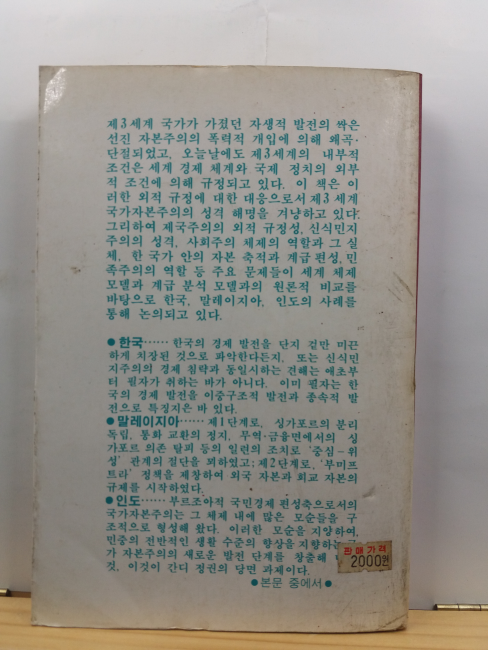 제3세계 국가가 가졌던 자생적 발전의 싹은
선진 자본주의의 폭력적 개입에 의해 왜곡·
단절되었고, 오늘날에도 제3세계의 내부적
조건은 세계 경제 체계와 국제 정치의 외부
적 조건에 의해 규정되고 있다. 이 책은 이
러한 외적 규정에 대한 대응으로서 제3세계
국가자본주의의 성격 해명을 겨냥하고 있다.
그리하여 제국주의의 외적 규정성, 신식민지
주의의 성격, 사회주의 체제의 역할과 그 실
체, 한 국가 안의 자본 축적과 계급 편성, 민
족주의의 역할 등 주요 문제들이 세계 체제
모델과 계급 분석 모델과의 원론적 비교를
바탕으로 한국, 말레이지아, 인도의 사례를
통해 논의되고 있다.
● 한국…… 한국의 경제 발전을 단지 겉만 미끈
하게 치장된 것으로 파악한다든지, 또는 신식민
지주의의 경제 침략과 동일시하는 견해는 애초부
터 필자가 취하는 바가 아니다. 이미 필자는 한
국의 경제 발전을 이중구조적 발전과 종속적 발
전으로 특징지은 바 있다.
● 말레이지아…… 제1단계로, 싱가포르의 분리
독립, 통화 교환의 정지, 무역·금융면에서의 싱
가포르 의존 탈피 등의 일련의 조치로 '중심-위
성' 관계의 절단을 꾀하였고; 제2단계로, '부미프
트라' 정책을 제창하여 외국 자본과 화교 자본의
규제를 시작하였다.
● 인도…… 부르조아적 국민경제 편성축으로서의
국가자본주의는 그 체제 내에 많은 모순들을 구
조적으로 형성해 왔다. 이러한 모순을 지양하여,
민중의 전반적인 생활 수준의 향상을 지향하는
가 자본주의의 새로운 발전 단계를 창출해
것, 이것이 간디 정권의 당면 과제이다.
● 본문 중에서 ●
판매가격
2000원